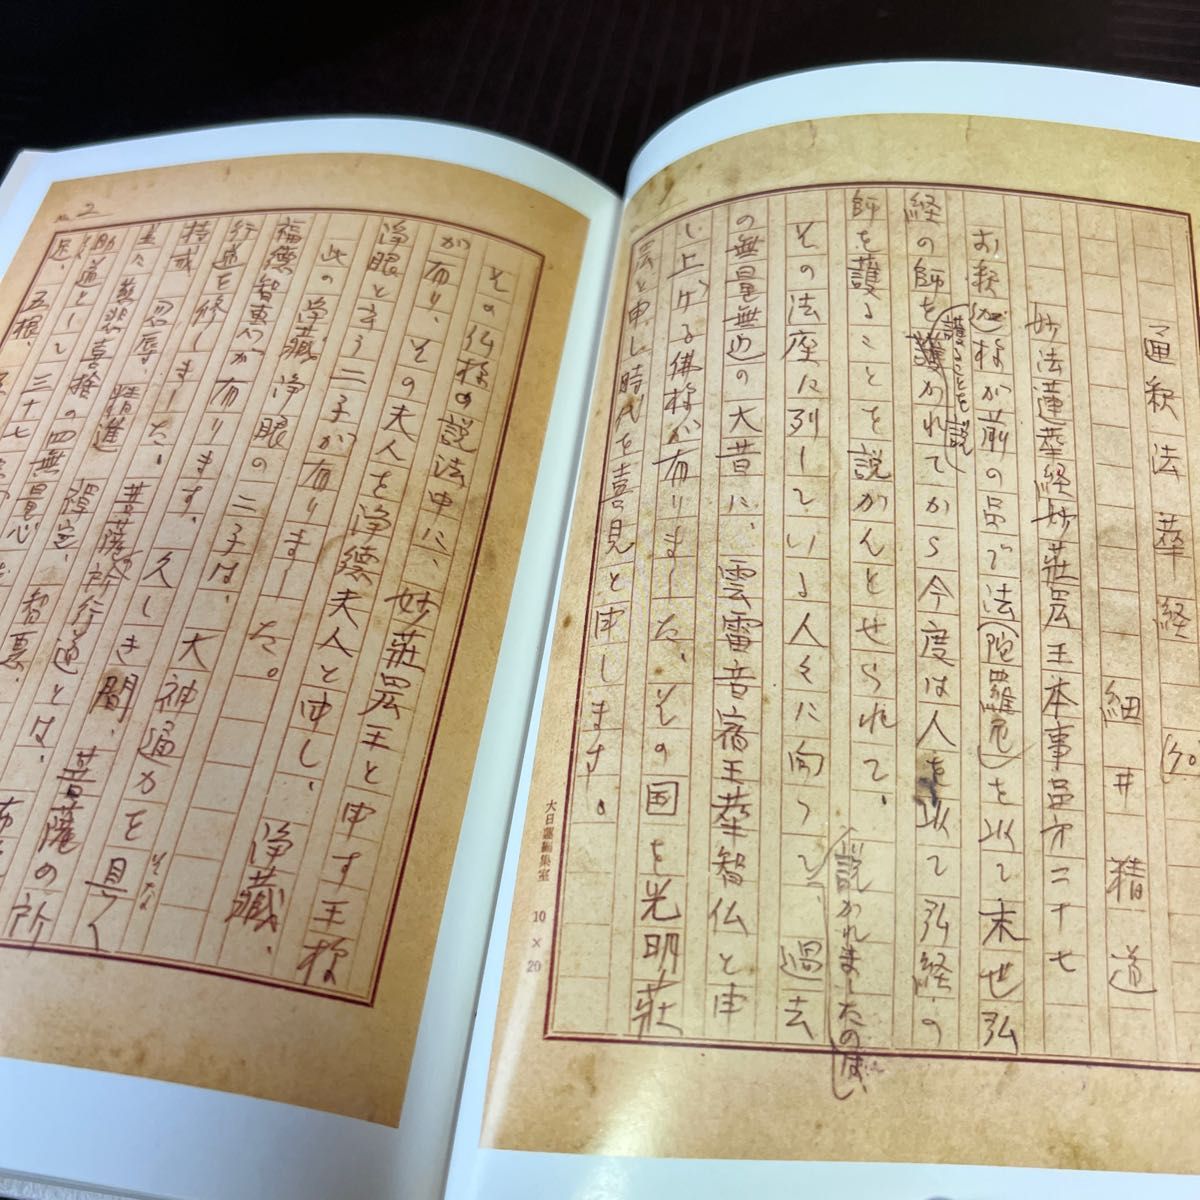 通釈法華経 (50)
細井精道
妙法蓮華経妙荘厳王本事品方二十七
お釈迦様が前の品で法(陀羅尼)を以て末世弘
経の師を護かれてから今度は人を以て弘経の
護ることを説
師を護ることを説かんとせられて、
説かれましたのは、
その法座に列している人々に向って、過去
の無量無辺の大昔に、雲雷音宿王華智仏と申
し上げる佛様が有りました、その国を光明荘
厳と申し時代を喜見と申します。
大日蓮編集室 10×20
No. 2
その仏様の説法中に、妙荘厳王と申す王様
が有り、その夫人を浄徳夫人と申し、浄蔵、
浄眼と云う二子が有りました。
此の浄蔵浄眼の二子は、大神通力を具へ
福徳智恵が有ります、久しき間、菩薩の所
行道を修しました。菩薩所行道とは、
持戒、忍辱、精進、禅定、智慧、
慈悲喜捨の四無量心
助道として三十七
足、五根、